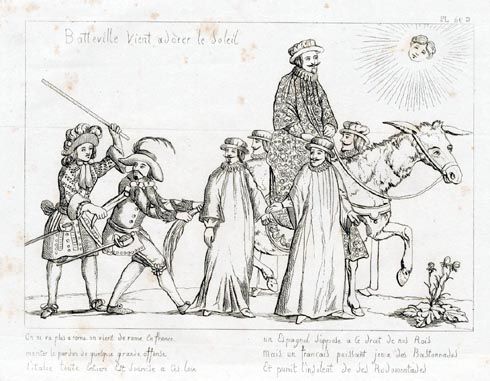 PL 51 D
Batteville Vient adorer le Soleil
On ne va plus a rome on vient de rome En france
meriter le pardon de quelque grande offense
L'italie toute Entiere Est soumise a ces loix
un Espagnol s'oppose a le droit de nos Rois
Mais un francais puissant joue des Bastonnades
Et punit l'insolent de ses Rodomontades